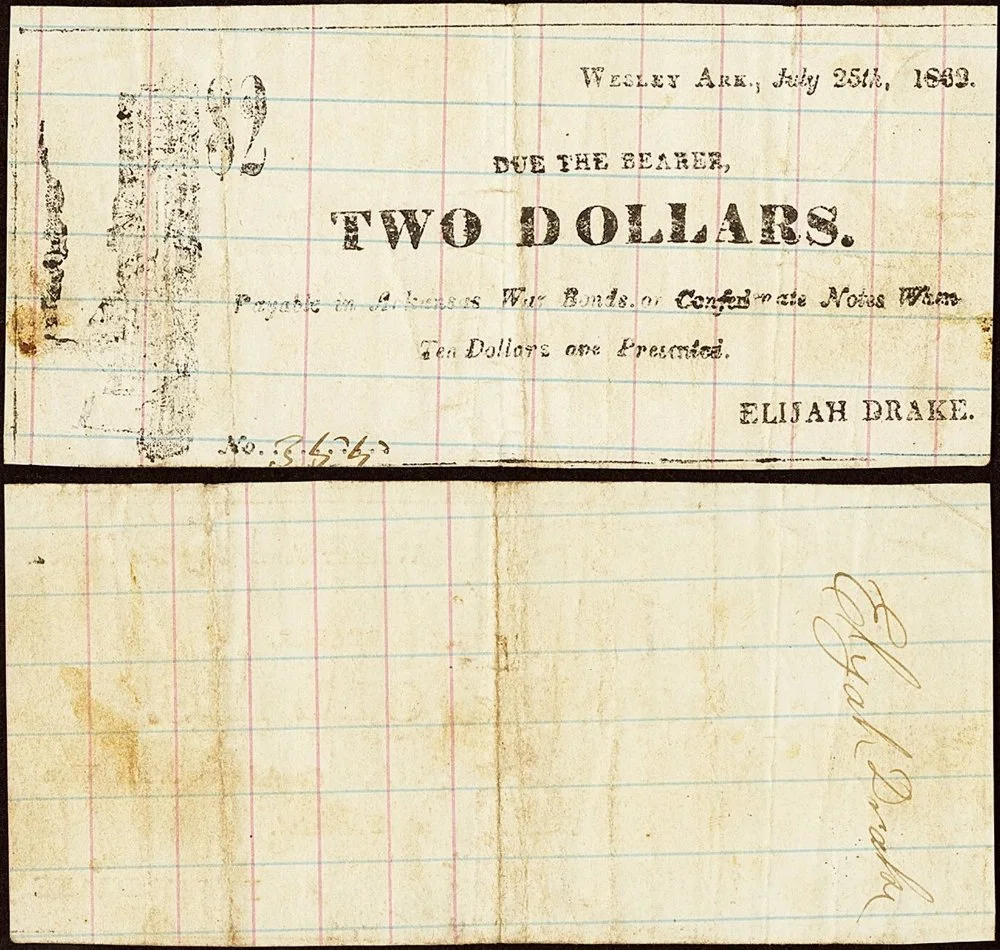 $2
WESLEY ARK., July 25th, 1862.
DUE THE BEARER,
TWO DOLLARS.
Payable in Arkansas War Bonds. or Confederate Notes When
Ten Dollars are Presented.
ELIJAH DRAKE.
No.
Elijah Drake